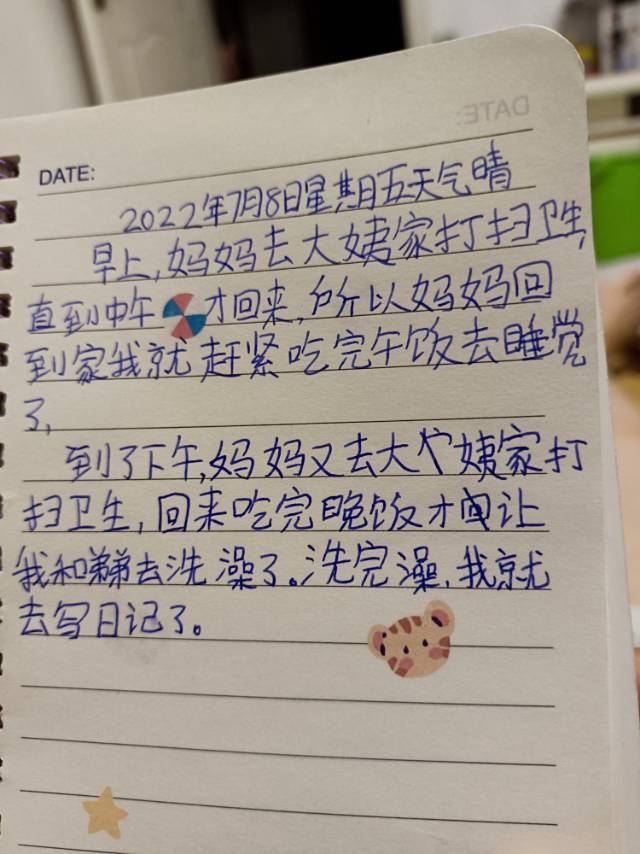 DATE:
DATE:
2022年7月8日星期五天气晴
早上,妈妈去大姨家打扫卫生,
直到中午才回来,所以妈妈回
到家我就赶紧吃完午饭去睡觉
了,
到了下午,妈妈又去大姨家打
扫卫生,回来吃完晚饭才让
我和弟弟去洗澡了。洗完澡,我就
去写日记了。